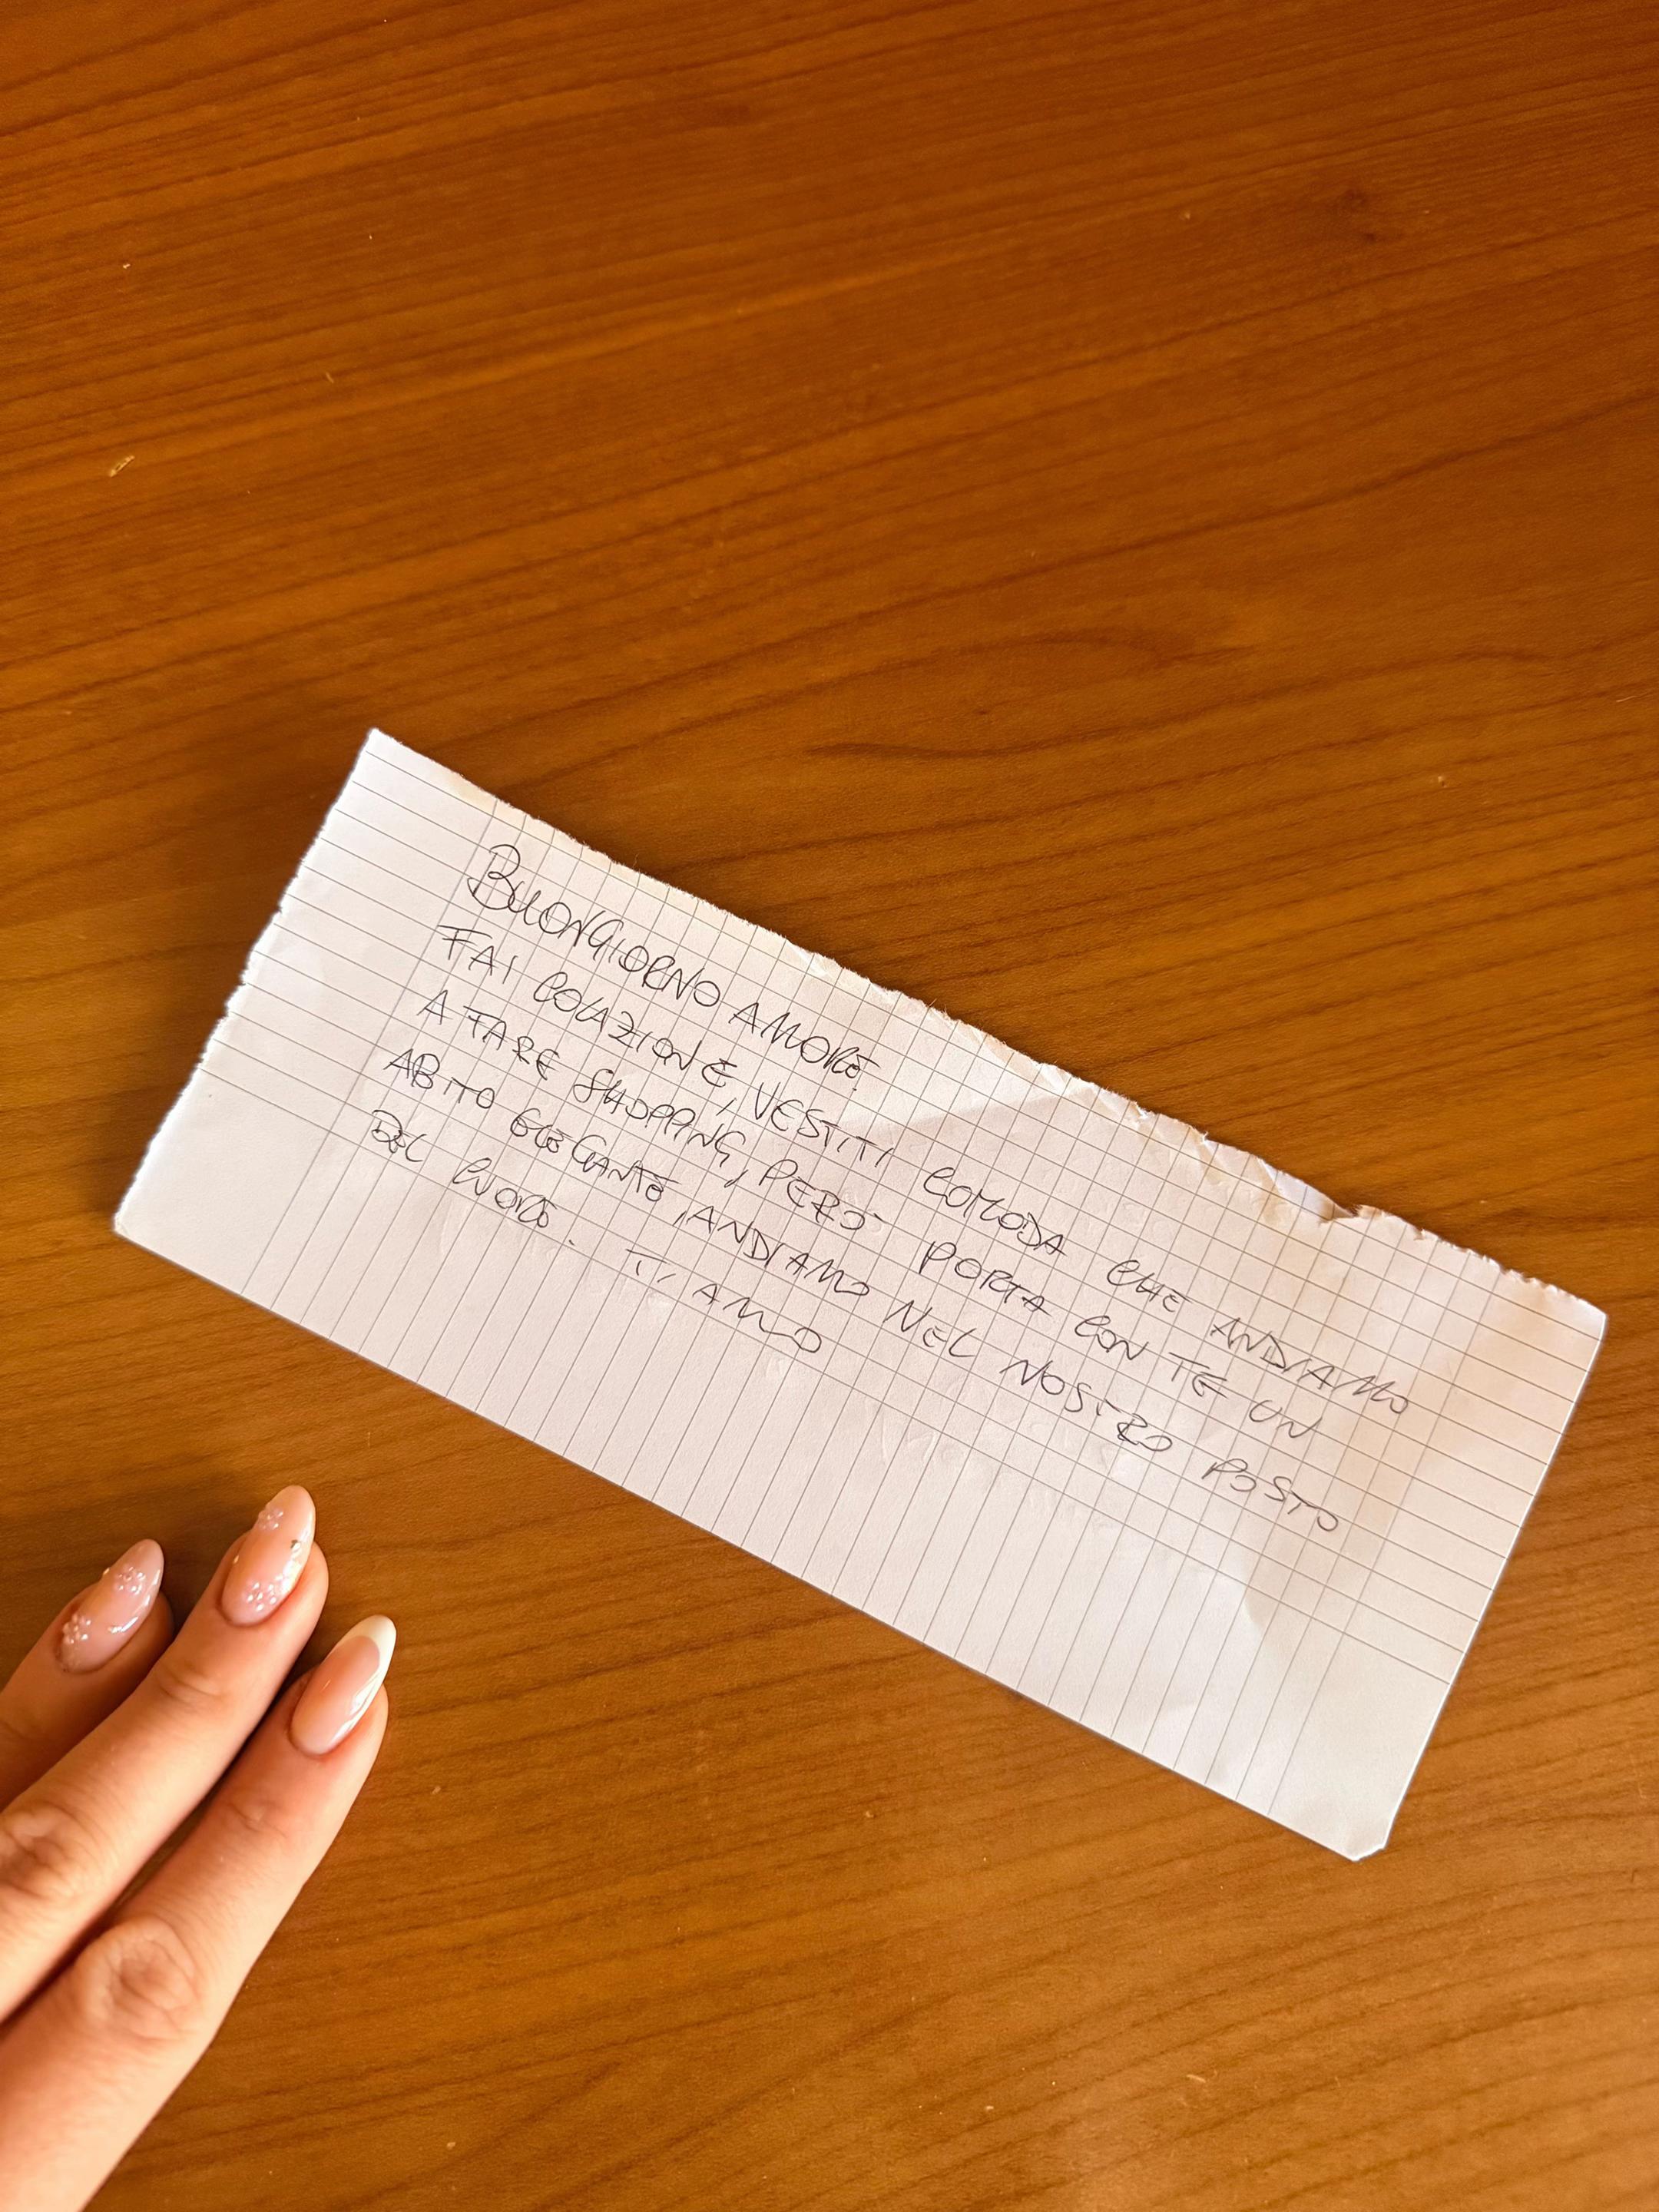 BUONGIORNO AMORE.
FAI COLAZIONE, VESTITI COMODA CHE ANDIAMO
A FARE SHOPPING, PERÒ PORTA CON TE UN
ABITO ELEGANTE, ANDIAMO NEL NOSTRO POSTO
DEL CUORE. TI AMO